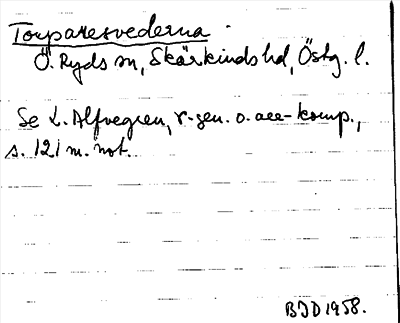 Torparesvederna
Ö. Ryds sn, Skärkinds hd, Östg. l.
Se L. Alfvegren, r-gen. o. acc-komp.,
s. 121 m. not.
BJD 1958.